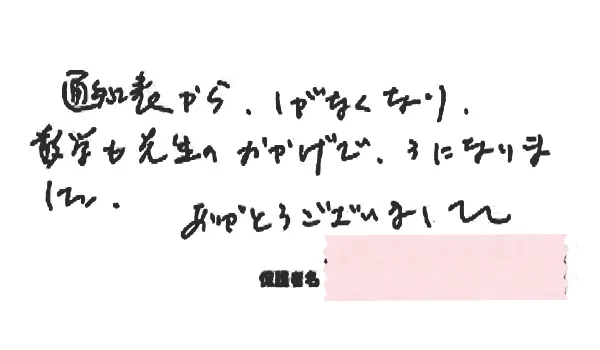 通知表から、1がなくなり、
数学も先生のおかげで、3になりま
した。
ありがとうございました
保護者名